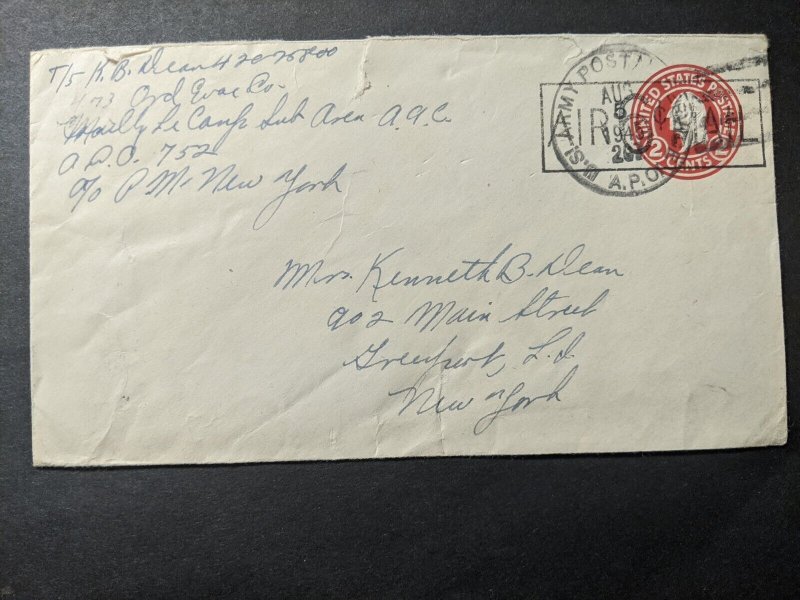 T/5 K. B. Dean 42025800
473 Ord Evac Co.
Mailly Le Camp Sub Area A.A.C.
A.P.O. 752
c/o P.M. New York
U.S. ARMY POSTAL
AUG
5
194
A.P.O.
UNITED STATES POSTAGE
2 CENTS
Mrs. Kenneth B. Dean
902 Main Street
Greenport, L.I.
New York